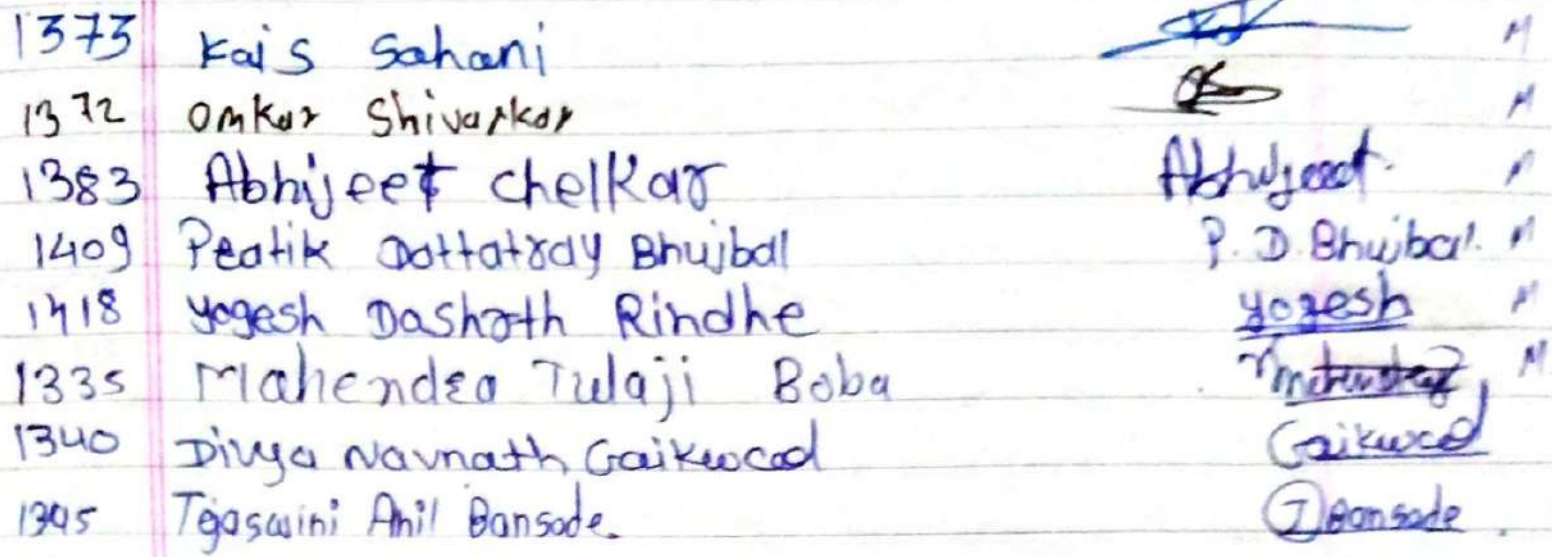 1373 Kais Sahani M
1372 Omkar Shivarkar M
1383 Abhijeet Chelkar Abhijeet. M
1409 Pratik Dattatray Bhujbal P. D. Bhujbal. M
1418 Yogesh Dashrath Rindhe Yogesh M
1335 Mahendra Tulaji Boba M
1340 Divya Navnath Gaikwad Gaikwad
Tejaswini Anil Bansode. Bansode.